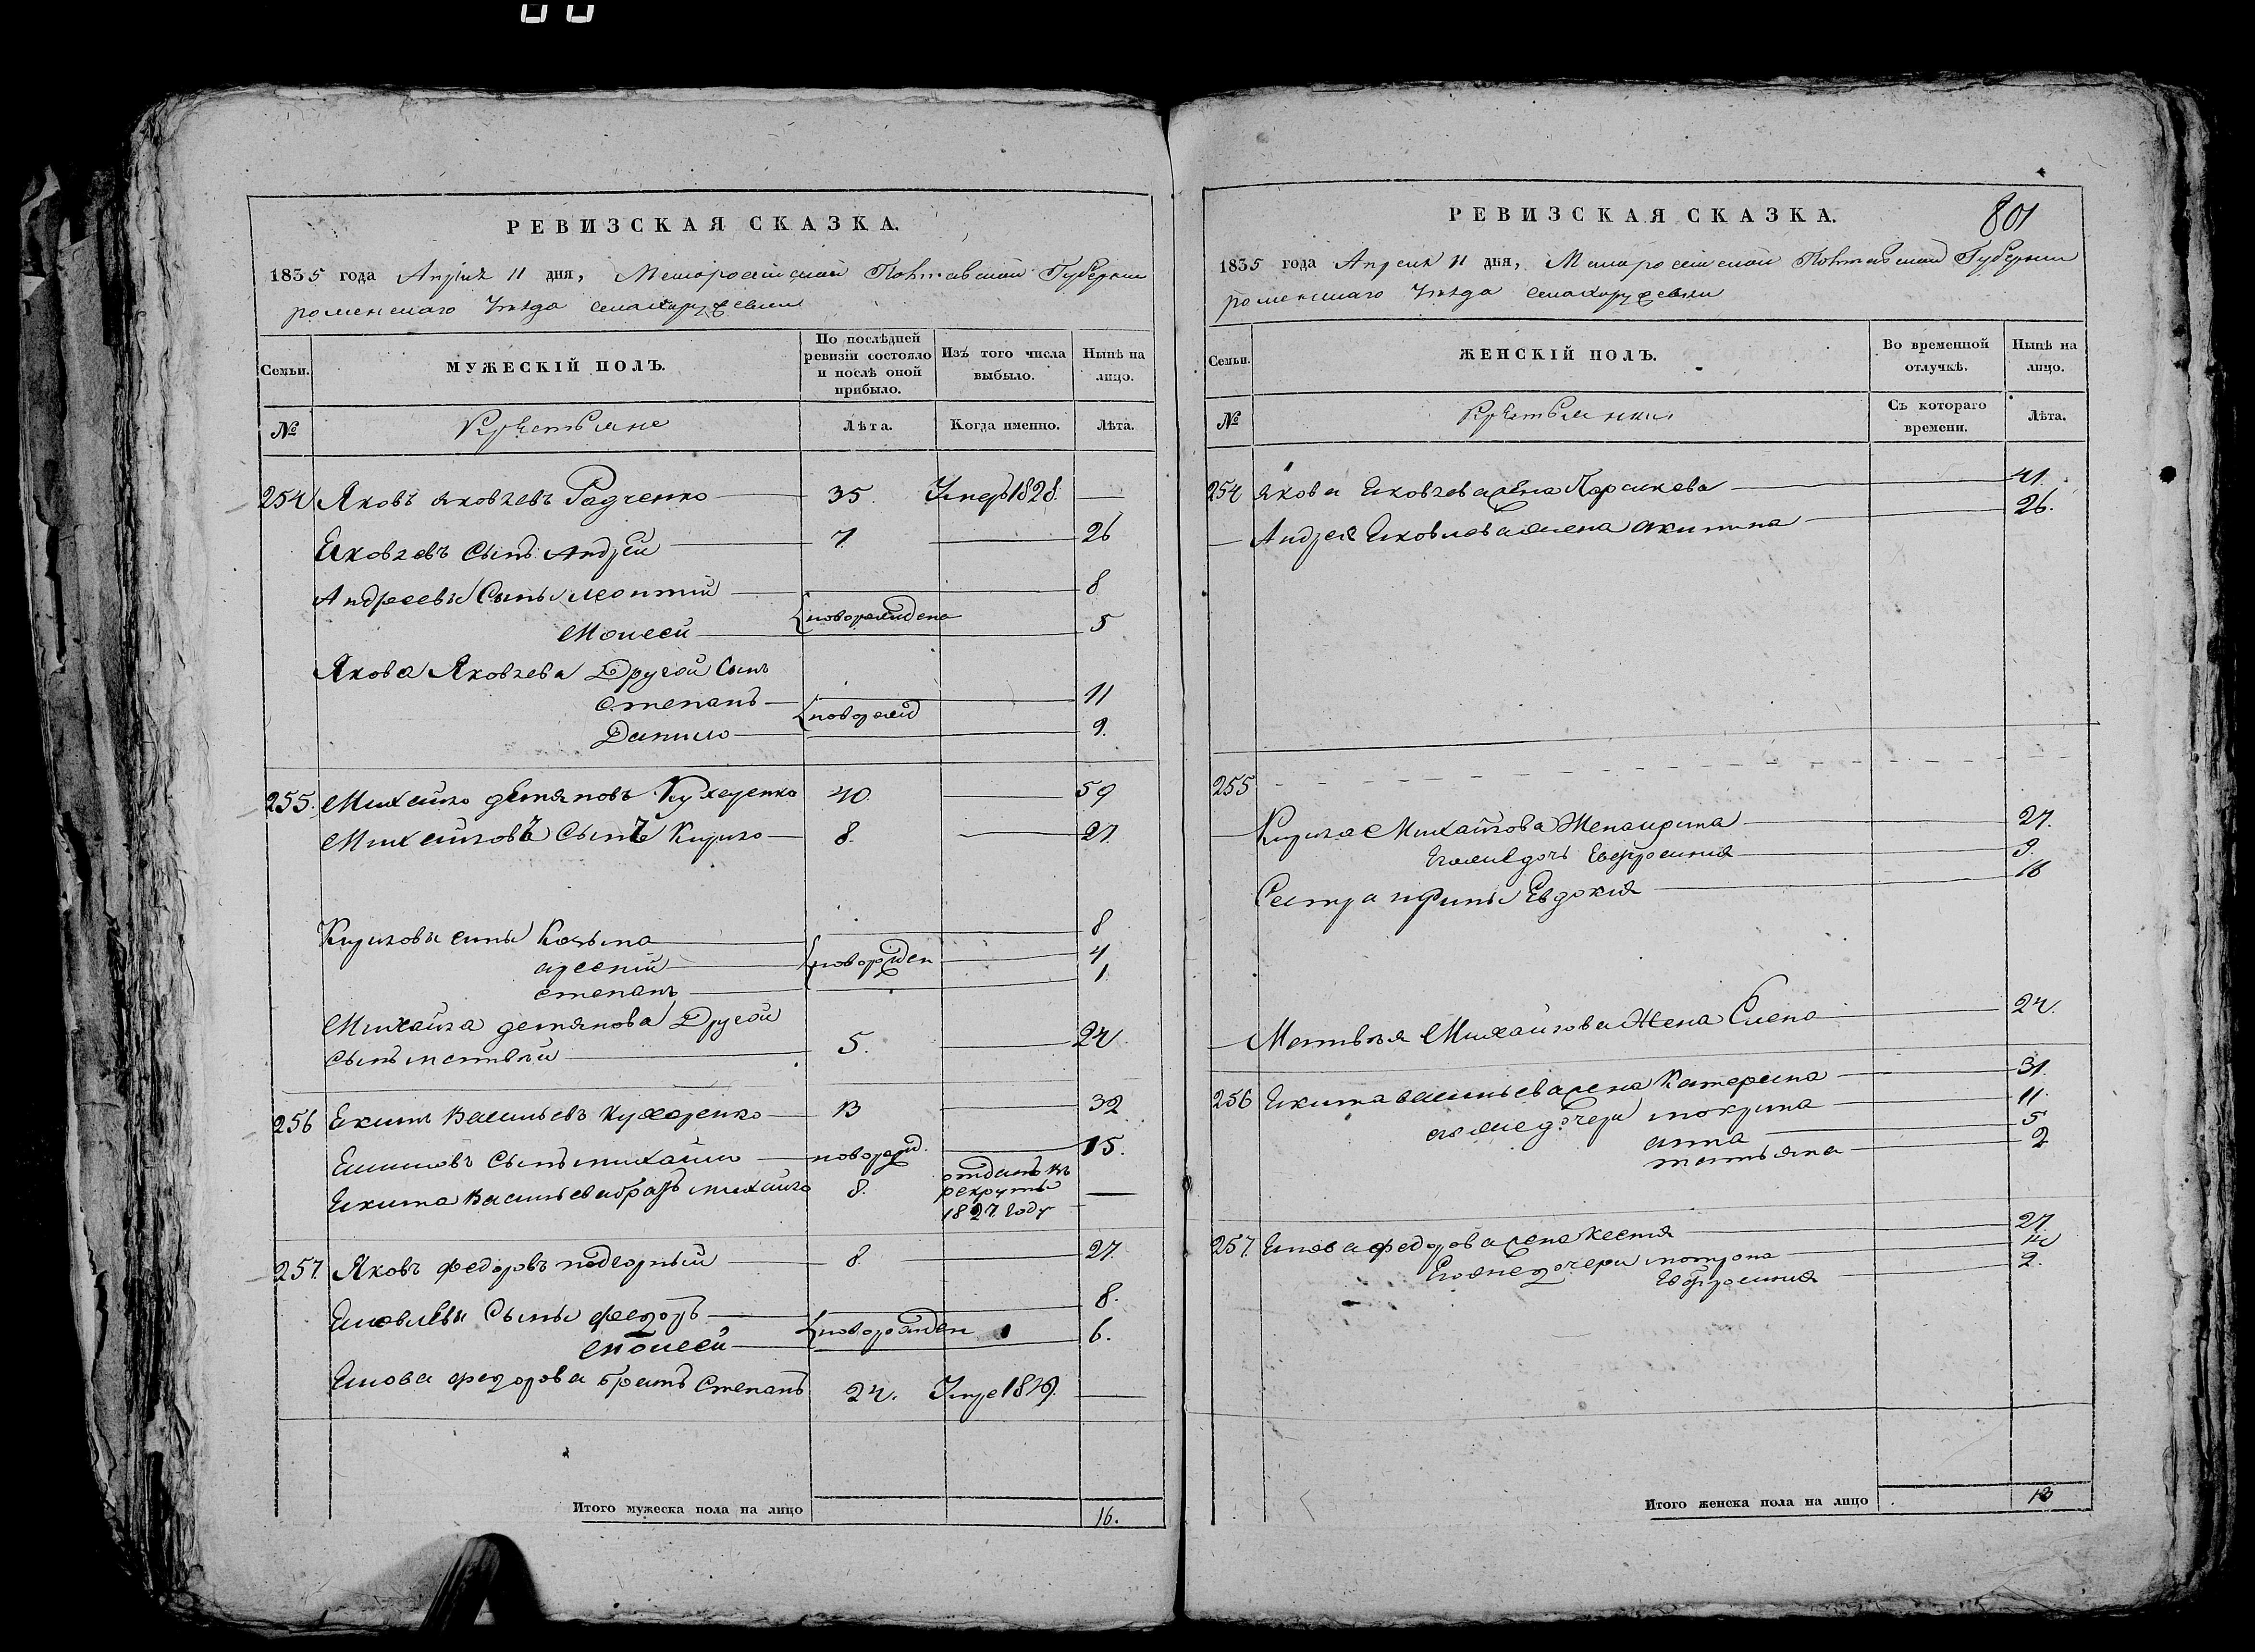 РЕВИЗСКАЯ СКАЗКА.
1835 года Апреля 11 дня, Малороссийской Полтавской Губернии
роменского Уезда села
Семьи.
МУЖЕСКІЙ ПОЛЪ.
По послѣдней ревизіи состояло и послѣ оной прибыло.
Изъ того числа выбыло.
Нынѣ на лицо.
№
Крестьяне
Лѣта.
Когда именно.
Лѣта.
254 Яковъ яковлевъ Радченко 35. Умеръ 1828.
Яковлевъ Сынъ Андрей 7 26
Андреевы Сыны леонтий 8
новорожденa
Моисей 5
Якова Яковлева Другой Сынъ
степанъ 11
новорожд
Данило 9.
255. Михайло демяновъ 40. 59
Михайловъ Сынъ Кирило 8. 27.
Кириловы сыны Козьма 8
арсений новорожден 4
степанъ 1.
Михайла демянова Другой
сынъ матвей 5. 24
256 Екимъ Васильевъ 13 32
Екимовъ Сынъ михайло новорожд. 15.
Екима Васильева братъ михайло 8. отданъ въ
рекруты
1827. году
257. Яковъ федоровъ 8. 27.
Яковлевы Сыны федоръ 8.
новорожден
моисей 6.
Якова федорова братъ Степанъ 24. Умре
Итого мужеска пола на лицо 16.
РЕВИЗСКАЯ СКАЗКА.
801
1835 года Апреля 11 дня, Малороссийской Полтавской Губернии
роменского Уезда села
Семьи.
ЖЕНСКІЙ ПОЛЪ.
Во временной отлучкѣ.
Нынѣ на лицо.
№
Крестьянки
Съ котораго времени.
Лѣта.
254 якова Яковлева жена Параскева 41.
Андрея Яковлева жена акилина 26.
255
Кирила Михайлова Жена ирина 27.
Его же дочь Евфросиния 9.
Сестра ирины Евдокия 16
Матвея Михайлова Жена Елена 24.
256 Екима васильева жена Катерина 31.
его же дочери мокрина 11.
анна 5
татьяна 2
257. Якова федорова жена 27.
Его же дочери мотрона
Евфросиния 2.
Итого женска пола на лицо 13